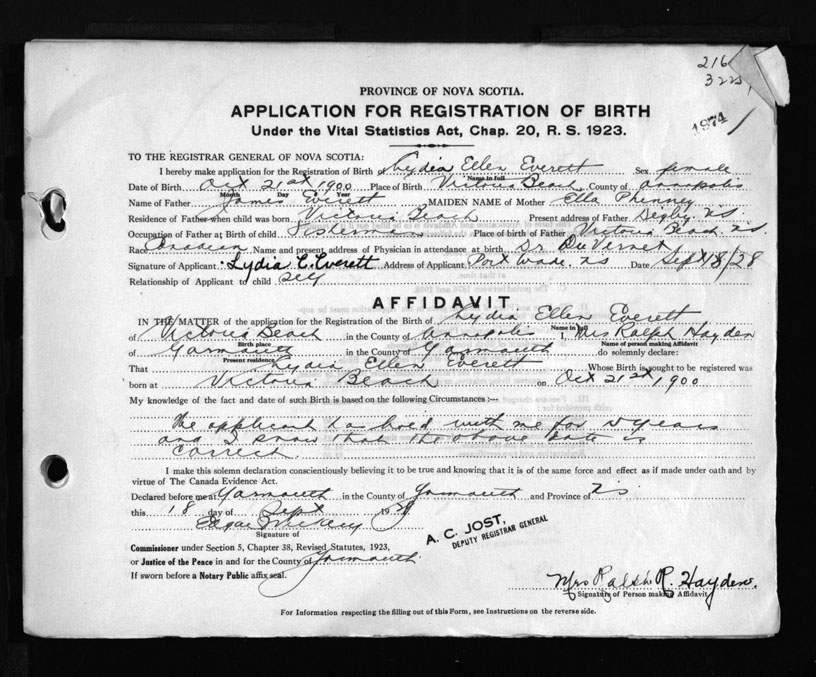 216
1974
PROVINCE OF NOVA SCOTIA.
APPLICATION FOR REGISTRATION OF BIRTH
Under the Vital Statistics Act, Chap. 20, R. S. 1923.
TO THE REGISTRAR GENERAL OF NOVA SCOTIA:
I hereby make application for the Registration of Birth Lydia Ellen Everett Sex female
Name in full
Date of Birth Oct 21st 1900 Place of Birth Victoria Beach County of Annapolis
Month Day Year
Name of Father James Everett MAIDEN NAME of Mother Ella Phinney
Residence of Father when child was born Victoria Beach Present address of Father Digby NS
Occupation of Father at Birth of child Fisherman Place of birth of Father Victoria Beach NS
Race Canadian Name and present address of Physician in attendance at birth Dr. DuVernet
Signature of Applicant: Lydia E. Everett Address of Applicant Port Wade NS Date Sept 18/28
Relationship of Applicant to child self
AFFIDAVIT.
IN THE MATTER of the application for the Registration of the Birth of Lydia Ellen Everett
Name in full
of Victoria Beach in the County of Annapolis I, Mrs Ralph Hayden
Birth place Name of person making Affidavit
of Yarmouth in the County of Yarmouth do solemnly declare:
Present residence
That Lydia Ellen Everett Whose Birth is sought to be registered was
born at Victoria Beach on Oct 21st 1900
My knowledge of the fact and date of such Birth is based on the following Circumstances :—
The applicant has lived with me for years
and I know that the above date is
correct.
I make this solemn declaration conscientiously believing it to be true and knowing that it is of the same force and effect as if made under oath and by
virtue of The Canada Evidence Act.
Declared before me at Yarmouth in the County of Yarmouth and Province of NS
this 18 day of Sept 19
Edgar
Signature of
A. C. JOST,
DEPUTY REGISTRAR GENERAL
Commissioner under Section 5, Chapter 38, Revised Statutes, 1923,
or Justice of the Peace in and for the County of Yarmouth
If sworn before a Notary Public affix seal.
Mrs Ralph R. Hayden.
Signature of Person making Affidavit
For Information respecting the filling out of this Form, see Instructions on the reverse side.